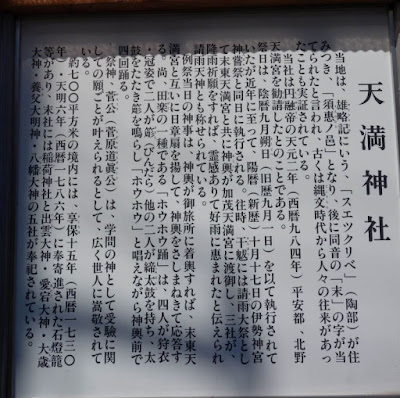 天満神社
当地は、雄略記にいう、「スエツクリベ」(陶部)が住
みつき、「須恵ノ邑」となり、後に同音の「末」の字が当
てられたと言われ、古くは縄文時代から人々の往来があっ
たことも実証されている。
当社は円融帝の天元二年(西暦九八四年)平安都、北野
天満宮を勧請したとのことである。
祭日は、陰暦九月朔日(旧暦九月一日)を以て執行されて
いたが近年に至って、陽暦(新暦)十月十七日の伊勢神宮
神嘗祭と同日に執行される。往時、干魃には請雨大祭とし
て末東天満宮と共に神輿が加茂天満宮に渡御し、三社が、
降雨祈願をすれば、霊感ありて好雨に恵まれたと伝えられ
請雨天神とも称せられている。
例祭当日の神事は、神輿が御旅所に着輿すれば、末東天
満宮と互いに日章扇を揚して、神輿をさしまねきて応答す
る。尚、田楽の一種である「ホウホウ踊」は、四人が狩衣
・冠姿で二人が(びんだら)他の二人が締太鼓を持ち、太
鼓をたたきを鳴らし「ホウホウ」と唱えながら神輿前で
四回踊る。
祭神、菅公(菅原道眞公)は、学問の神として受験に関
しての願ごとが叶えられるとして、広く世人に崇敬されて
いる。
約七〇〇平方米の境内には、享保十五年(西暦一七三〇
年)・天明六年(西暦一七八六年)に奉寄進された石燈籠
等があり、末社には稲荷神社と出雲大神・愛宕大神・大歳
大神・養父大明神・八幡大神の五社が奉祀されている。